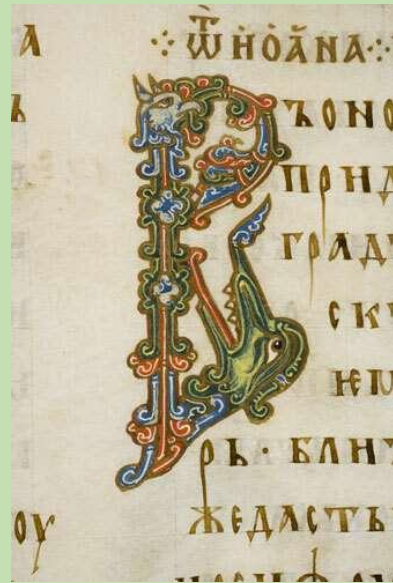 А
Ъ
ОУ
⁘ ѾИОА҃НА ⁘
ВЪОНО
ПРИД
ГРАД
СК
ѤМ
РЬ · БЛИ
ЖЕДАСТЬ